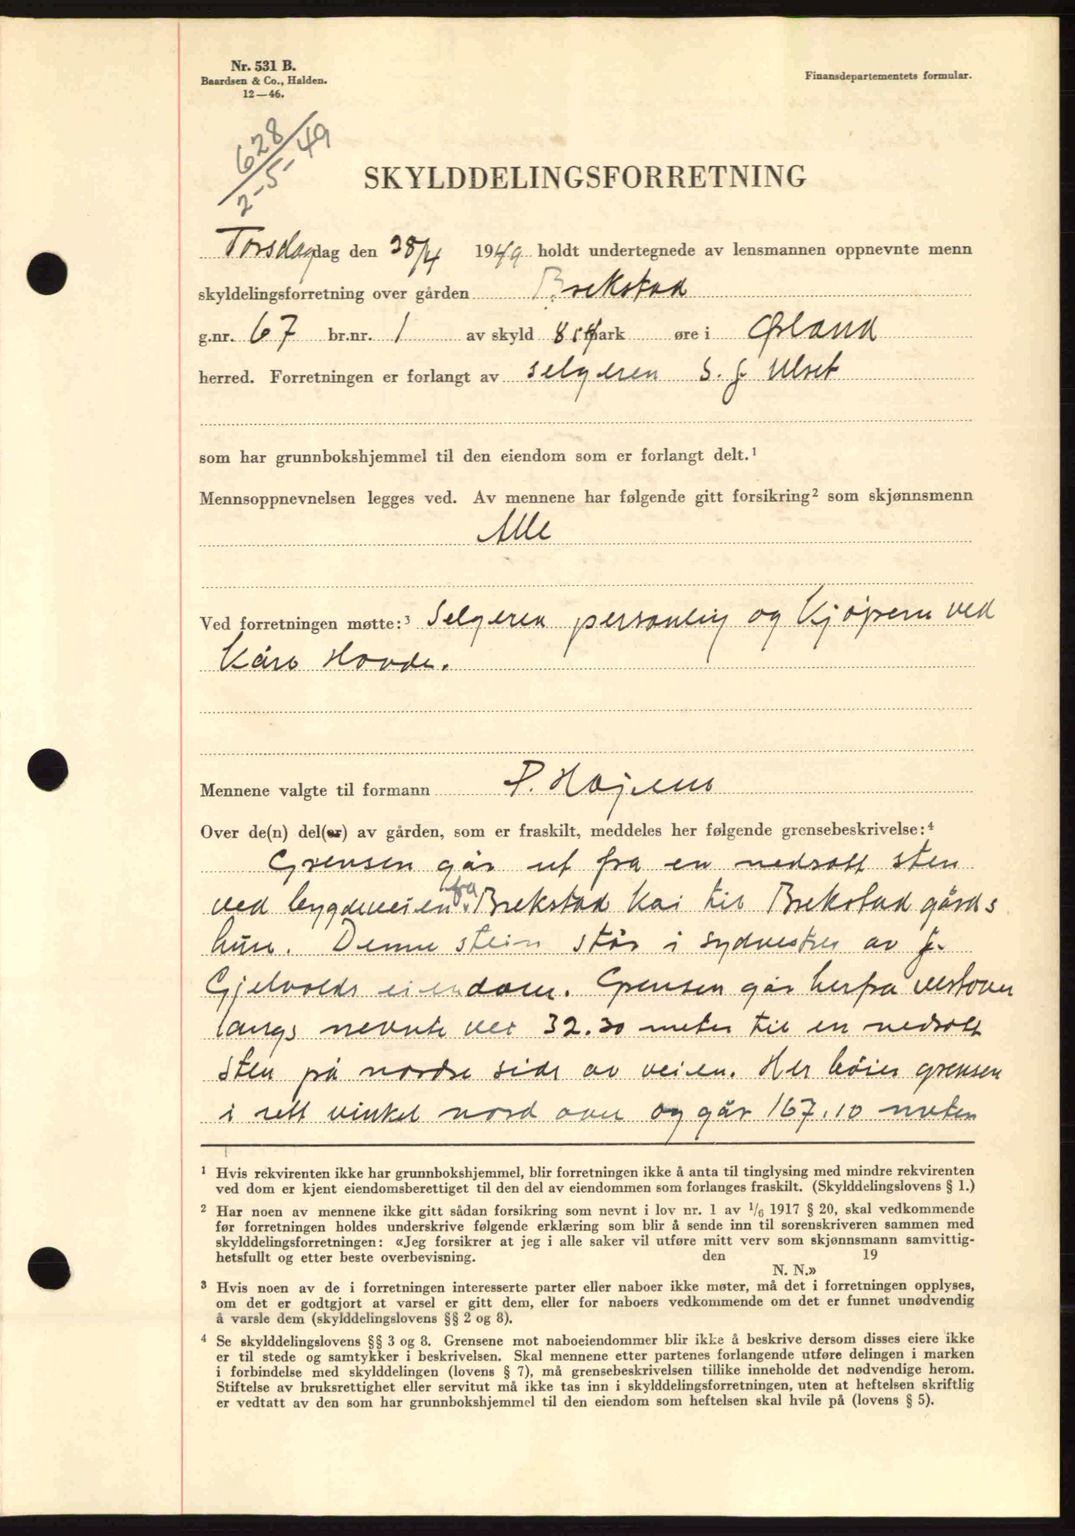 Nr. 531 B.
Baardsen & Co., Halden.
12—46.
Finansdepartementets formular.
628
2-5-49
SKYLDDELINGSFORRETNING
Torsdag dag den 28/4 1949 holdt undertegnede av lensmannen oppnevnte menn
skyldelingsforretning over gården Brekstad
g.nr. 67 br.nr. 1 av skyld mark øre i Ørland
herred. Forretningen er forlangt av selgeren S. J. Ulset
som har grunnbokshjemmel til den eiendom som er forlangt delt.¹
Mennsoppnevnelsen legges ved. Av mennene har følgende gitt forsikring² som skjønnsmenn
Alle
Ved forretningen møtte:³ Selgeren personlig og Kjøperen ved
Kåre Hovde.
Mennene valgte til formann P.
Over de(n) del(er) av gården, som er fraskilt, meddeles her følgende grensebeskrivelse:⁴
Grensen går ut fra en nedsatt sten
ved bygdeveien fra Brekstad Kai til Brekstad gårds
hus. Denne stein står i sydvestre av J.
Gjelvolds eiendom. Grensen går herfra vestover
langs nevnte vei 32.30 meter til en nedsatt
sten på nordre side av veien. Her bøier grensen
i rett vinkel nord over og går 167.10 meter
¹ Hvis rekvirenten ikke har grunnbokshjemmel, blir forretningen ikke å anta til tinglysing med mindre rekvirenten
ved dom er kjent eiendomsberettiget til den del av eiendommen som forlanges fraskilt. (Skylddelingslovens § 1.)
² Har noen av mennene ikke gitt sådan forsikring som nevnt i lov nr. 1 av 1/6 1917 § 20, skal vedkommende
før forretningen holdes underskrive følgende erklæring som blir å sende inn til sorenskriveren sammen med
skylddelingsforretningen: «Jeg forsikrer at jeg i alle saker vil utføre mitt verv som skjønnsmann samvittig-
hetsfullt og etter beste overbevisning. den 19
N. N.»
³ Hvis noen av de i forretningen interesserte parter eller naboer ikke møter, må det i forretningen opplyses,
om det er godtgjort at varsel er gitt dem, eller for naboers vedkommende om det er funnet unødvendig
å varsle dem (skylddelingslovens §§ 2 og 8).
⁴ Se skylddelingslovens §§ 3 og 8. Grensene mot naboeiendommer blir ikke å beskrive dersom disses eiere ikke
er til stede og samtykker i beskrivelsen. Skal mennene etter partenes forlangende utføre delingen i marken
i forbindelse med skylddelingen (lovens § 7), må grensebeskrivelsen tillike inneholde det nødvendige herom.
Stiftelse av bruksrettighet eller servitut må ikke tas inn i skylddelingsforretningen, uten at heftelsen skriftlig
er vedtatt av den som har grunnbokshjemmel til den eiendom som heftelsen skal hvile på (lovens § 5).